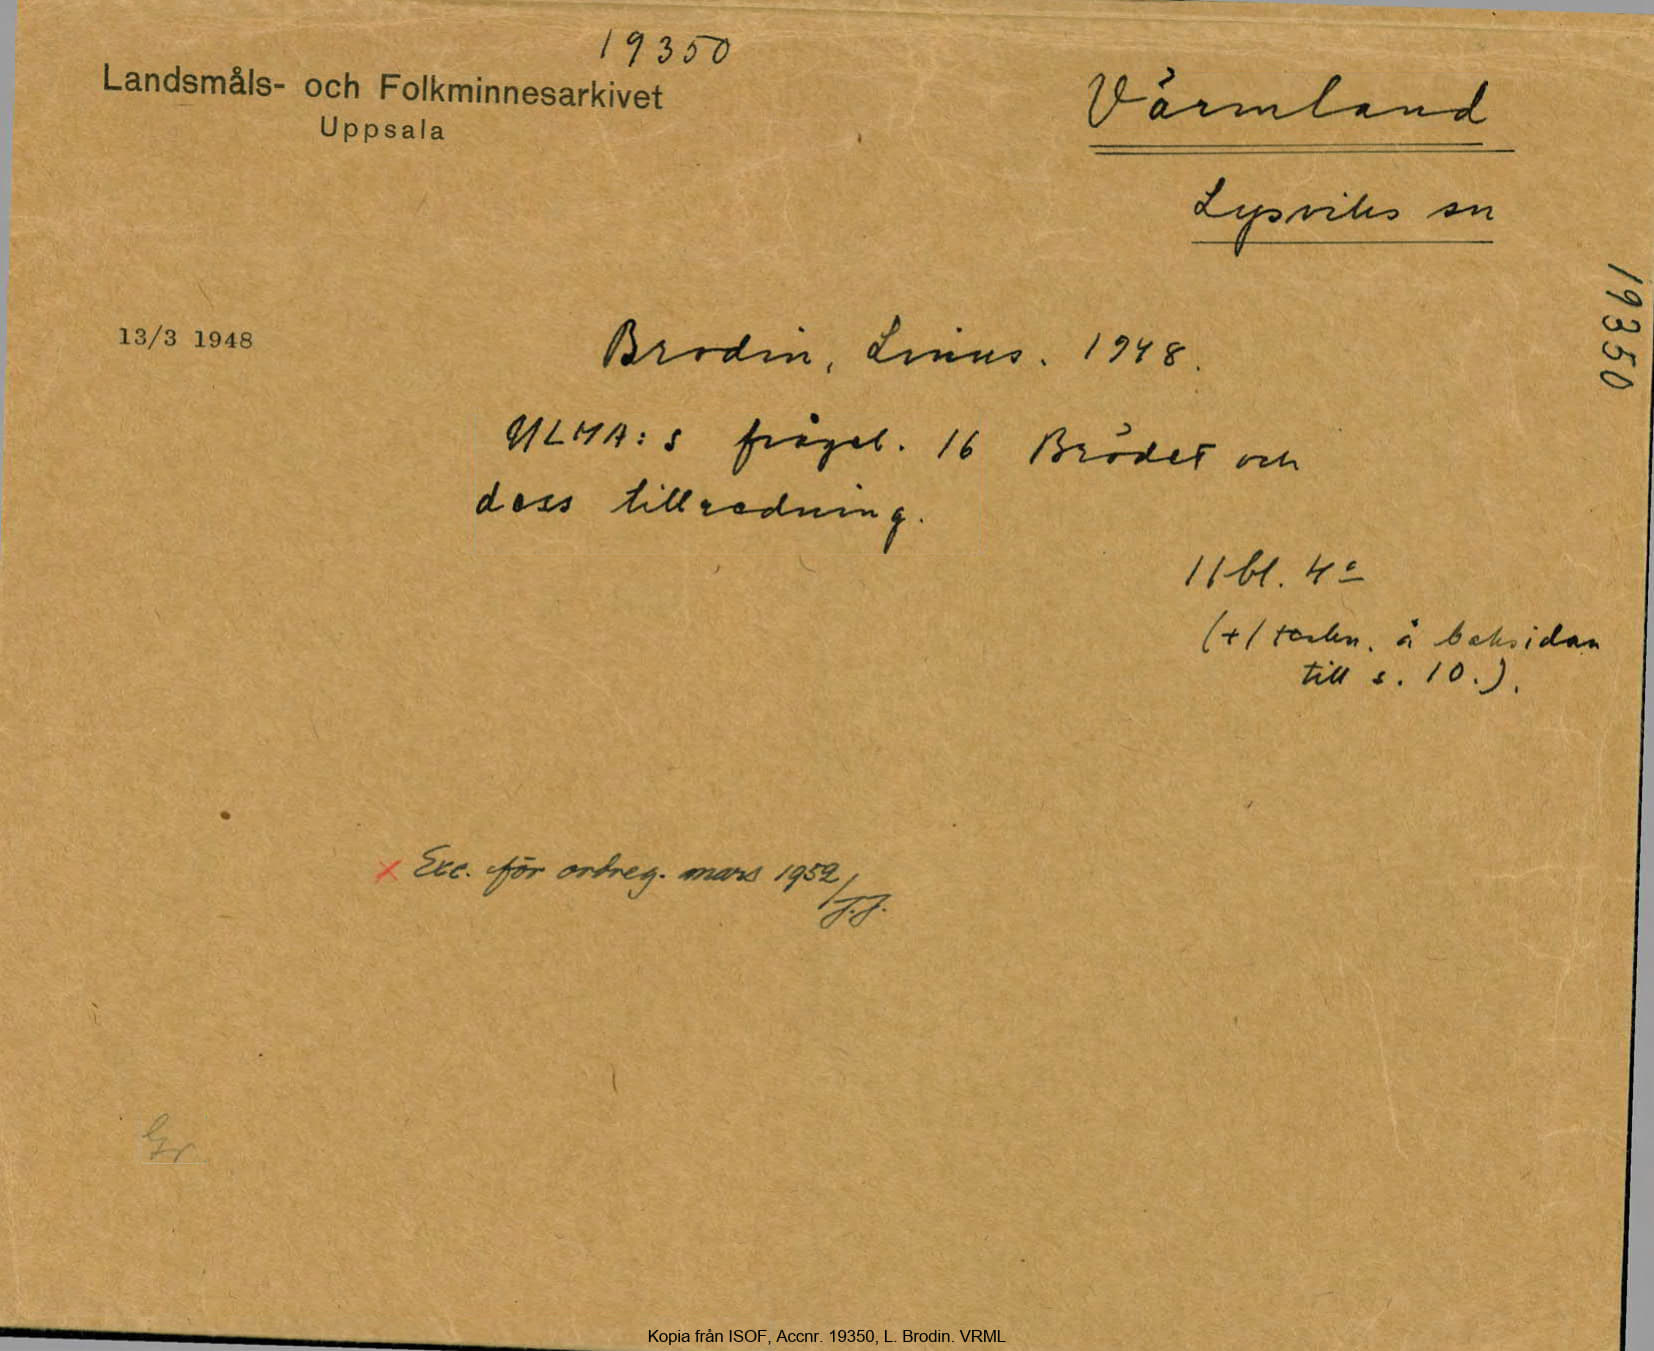 19350
Landsmåls- och Folkminnesarkivet
Uppsala
Värmland
Lysviks sn
19350
13/3 1948
Brodin, Linus. 1948.
ULMA:s frågel. 16 Brödet och
dess tillredning.
11 bl. 4o
(+1 teckn. å baksidan
till s. 10.).
x Exc. för ordreg. mars 1952/J.J.
Gr
Kopia från ISOF, Accnr. 19350, L. Brodin. VRML